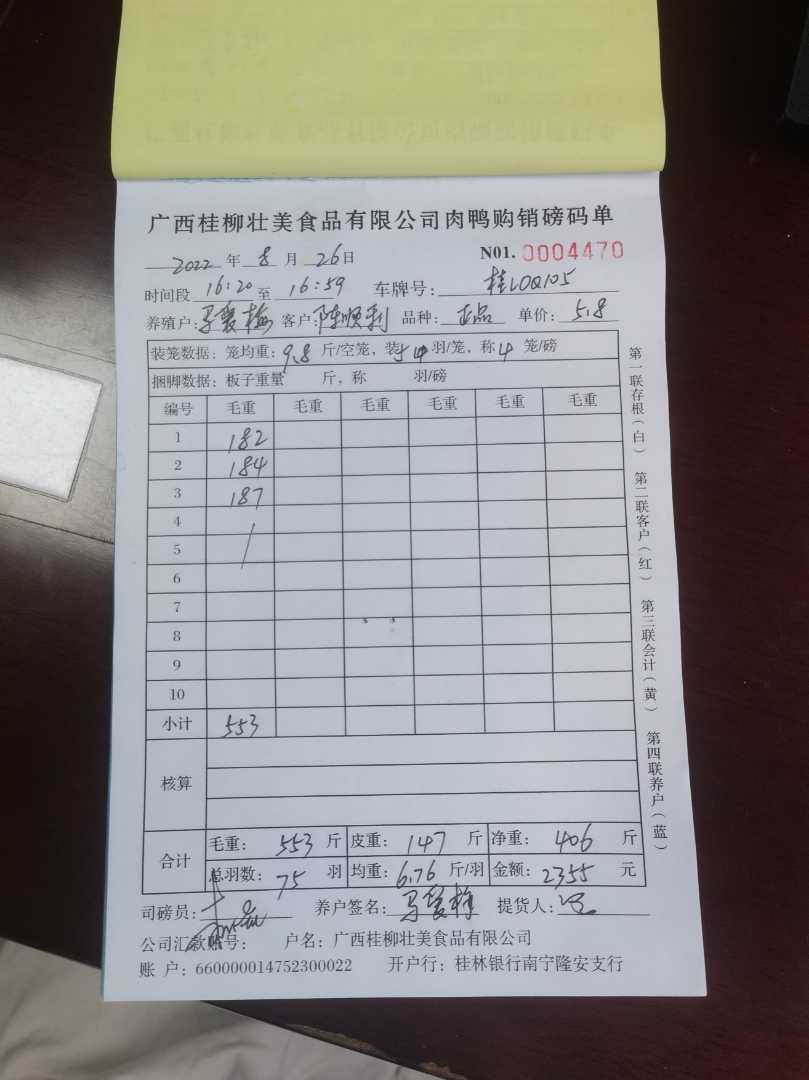 广西桂柳壮美食品有限公司肉鸭购销磅码单
2022 年 8 月 26 日 N01. 0004470
时间段 16:20 至 16:59 车牌号: 桂L0Q105
养殖户: 马爱梅 客户: 陈顺利 品种: 正品 单价: 5.8
装笼数据: 笼均重: 9.8 斤/空笼, 装 5 羽/笼, 称 4 笼/磅
捆脚数据: 板子重量 斤, 称 羽/磅
编号 毛重 毛重 毛重 毛重 毛重 毛重
1 182
2 184
3 187
4
5
6
7
8
9
10
小计 553
核算
合计 毛重: 553 斤 皮重: 147 斤 净重: 406 斤
总羽数: 75 羽 均重: 6.76 斤/羽 金额: 2355 元
司磅员: 养户签名: 马爱梅 提货人:
公司汇款账号: 户名: 广西桂柳壮美食品有限公司
账 户: 660000014752300022 开户行: 桂林银行南宁隆安支行
第一联存根(白) 第二联客户(红) 第三联会计(黄) 第四联养户(蓝)